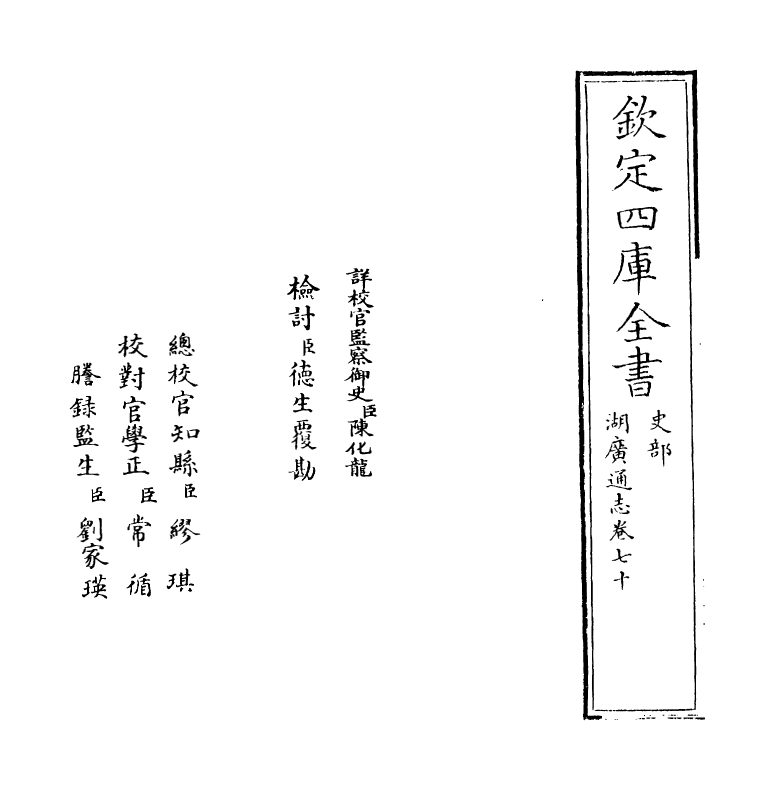 欽定四庫全書
史部
湖廣通志卷七十
詳校官監察御史臣陳化龍
檢討臣德生覆勘
總校官知縣臣繆琪
校對官學正臣常循
謄録監生臣劉家瑛